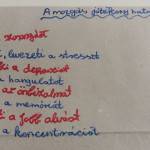 A mozgás jótékony hatá
szorongást
, levezeti a stresszt
ti a depressziót
a hangulatot
az önbizalmat
a memóriát
ti a jobb alvást
a koncentrációt